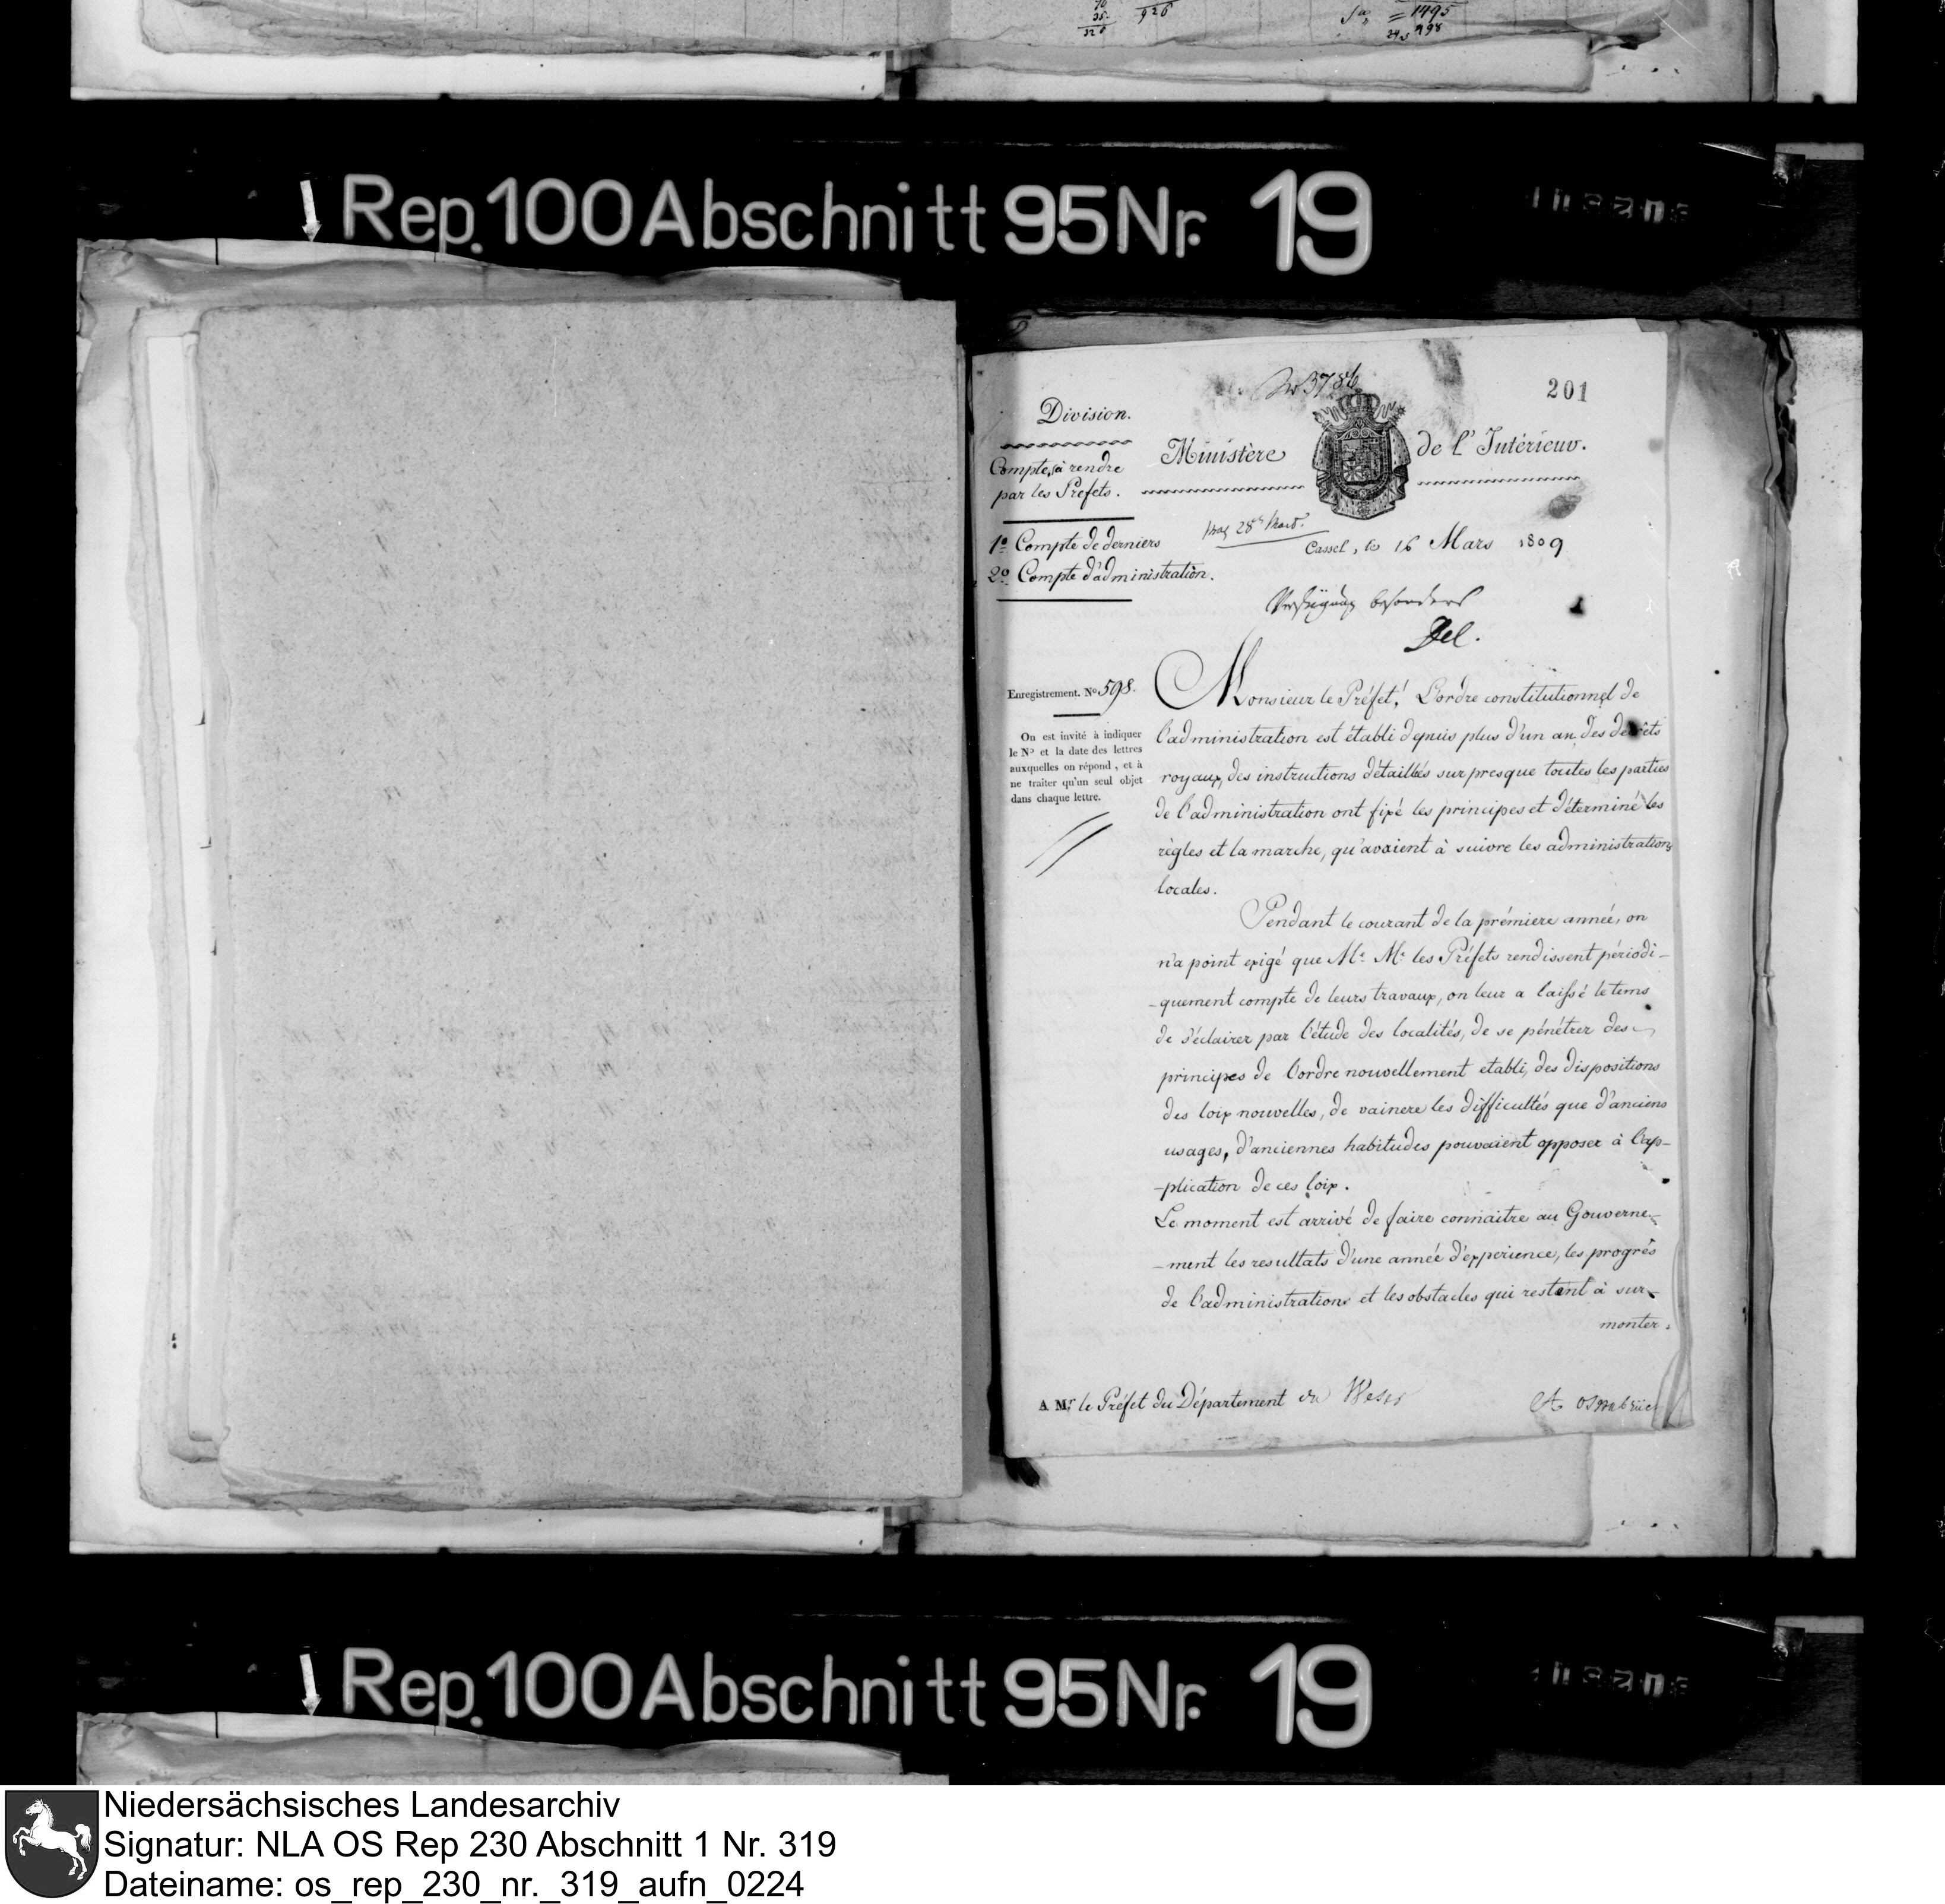 926
1495
998
Rep. 100 Abschnitt 95 Nr. 19
201
Division.
Ministère de l'Intérieur.
Comptes à rendre
par les Préfets.
1º Compte de deniers
2º Compte d'administration.
28 Mars
Cassel, le 16 Mars 1809
besonders
Enregistrement. Nº 598.
On est invité à indiquer
le Nº et la date des lettres
auxquelles on répond, et à
ne traiter qu'un seul objet
dans chaque lettre.
Monsieur le Préfet! L'ordre constitutionnel de
l'administration est établi depuis plus d'un an, des décrets
royaux, des instructions détaillés sur presque toutes les parties
de l'administration ont fixé les principes et déterminé les
règles et la marche, qu'avaient à suivre les administrations
locales.
Pendant le courant de la prémiere année, on
n'a point exigé que Mr. Mr. les Préfets rendissent périodi-
-quement compte de leurs travaux, on leur a laissé le tems
de s'éclairer par l'étude des localités, de se pénétrer des
principes de l'ordre nouvellement etabli, des dispositions
des loix nouvelles, de vaincre les difficultés que d'anciens
usages, d'anciennes habitudes pouvaient opposer à l'ap-
-plication de ces loix.
Le moment est arrivé de faire connaitre au Gouverne-
-ment les resultats d'une année d'experience, les progrès
de l'administration et les obstacles qui restent à sur-
monter.
A Mr. le Préfet du Département du Weser
A Osnabrück
Rep. 100 Abschnitt 95 Nr. 19
Niedersächsisches Landesarchiv
Signatur: NLA OS Rep 230 Abschnitt 1 Nr. 319
Dateiname: os_rep_230_nr._319_aufn_0224